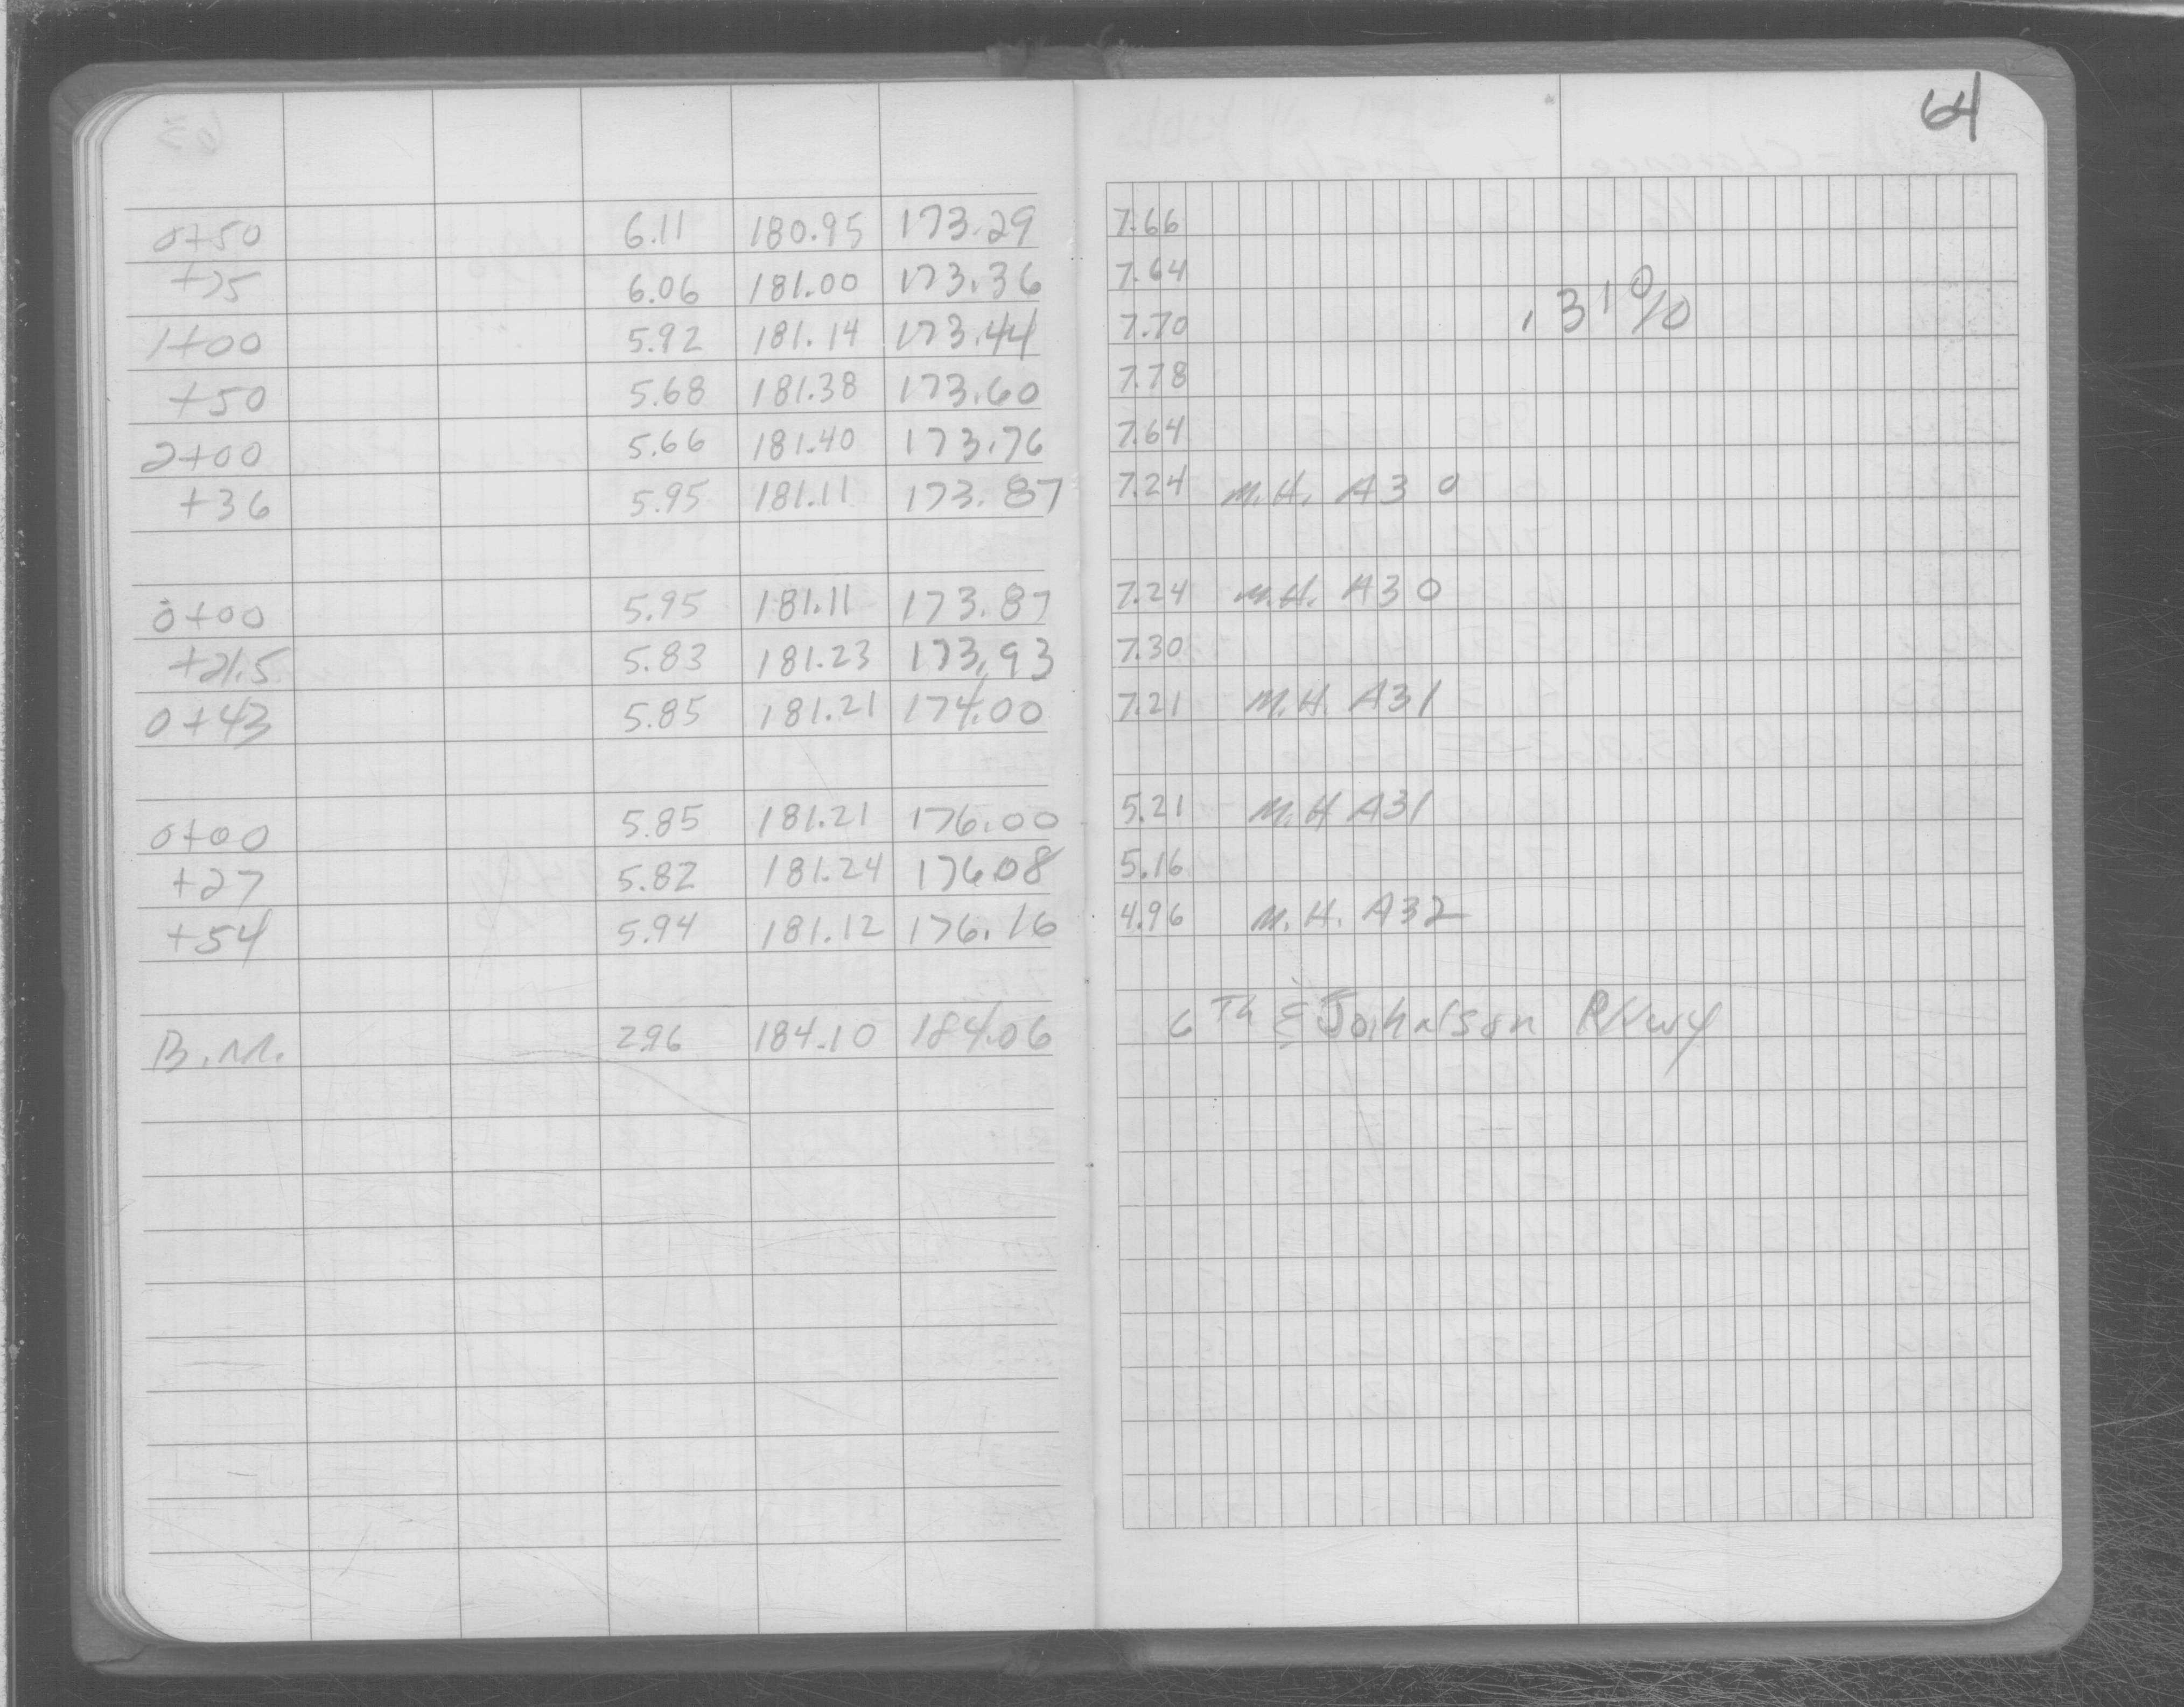 64
0+50 6.11 180.95 173.29 7.66
+75 6.06 181.00 173.36 7.64
.31%
1+00 5.92 181.14 173.44 7.70
+50 5.68 181.38 173.60 7.78
2+00 5.66 181.40 173.76 7.64
+36 5.95 181.11 173.87 7.24 M.H. A30
0+00 5.95 181.11 173.87 7.24 M.H. A30
+21.5 5.83 181.23 173.93 7.30
0+43 5.85 181.21 174.00 7.21 M.H. A31
0+00 5.85 181.21 176.00 5.21 M.H A31
+27 5.82 181.24 176.08 5.16
+54 5.94 181.12 176.16 4.96 M.H. A32
B.M. 2.96 184.10 184.06 6Th & Johnson PKwy